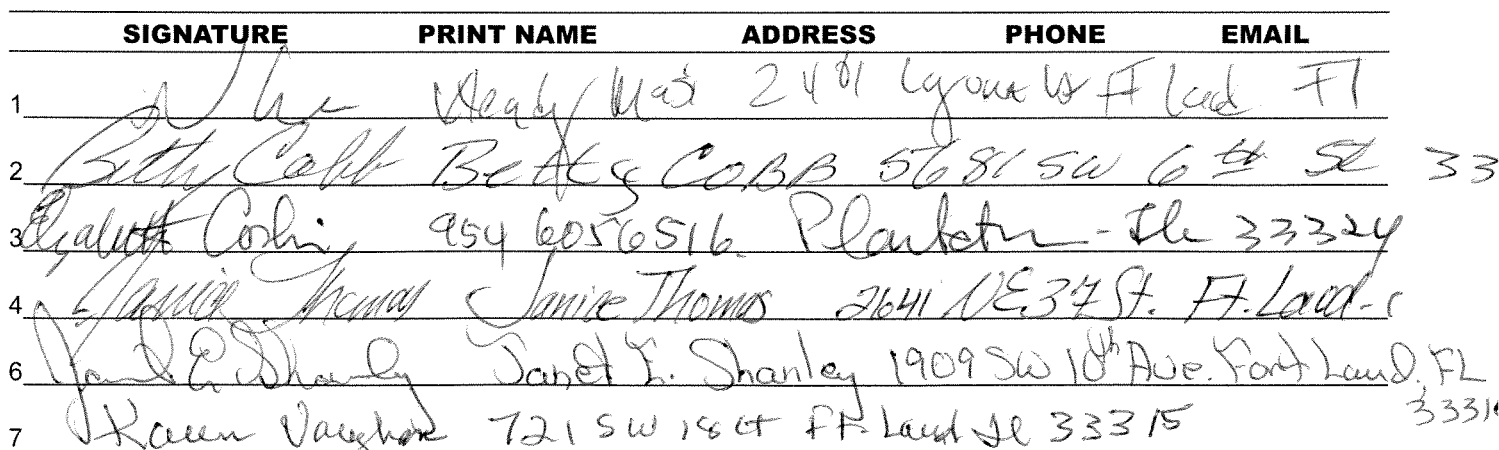 SIGNATURE PRINT NAME ADDRESS PHONE EMAIL
1 2481 Ft Laud Fl
2 Betty Cobb Betty COBB 5681 SW 6th St 33
3 Elizabeth 954 6056516. Plantation - Fl 33324
4 Janice Thomas Janice Thomas 2641 NE 37 St. Ft. Laud-
6 Janet E. Shanley Janet E. Shanley 1909 SW 10th Ave. Fort Laud. FL
3331
7 Karen Vaughan 721 SW 18 Ct Ft. Laud Fl 33315